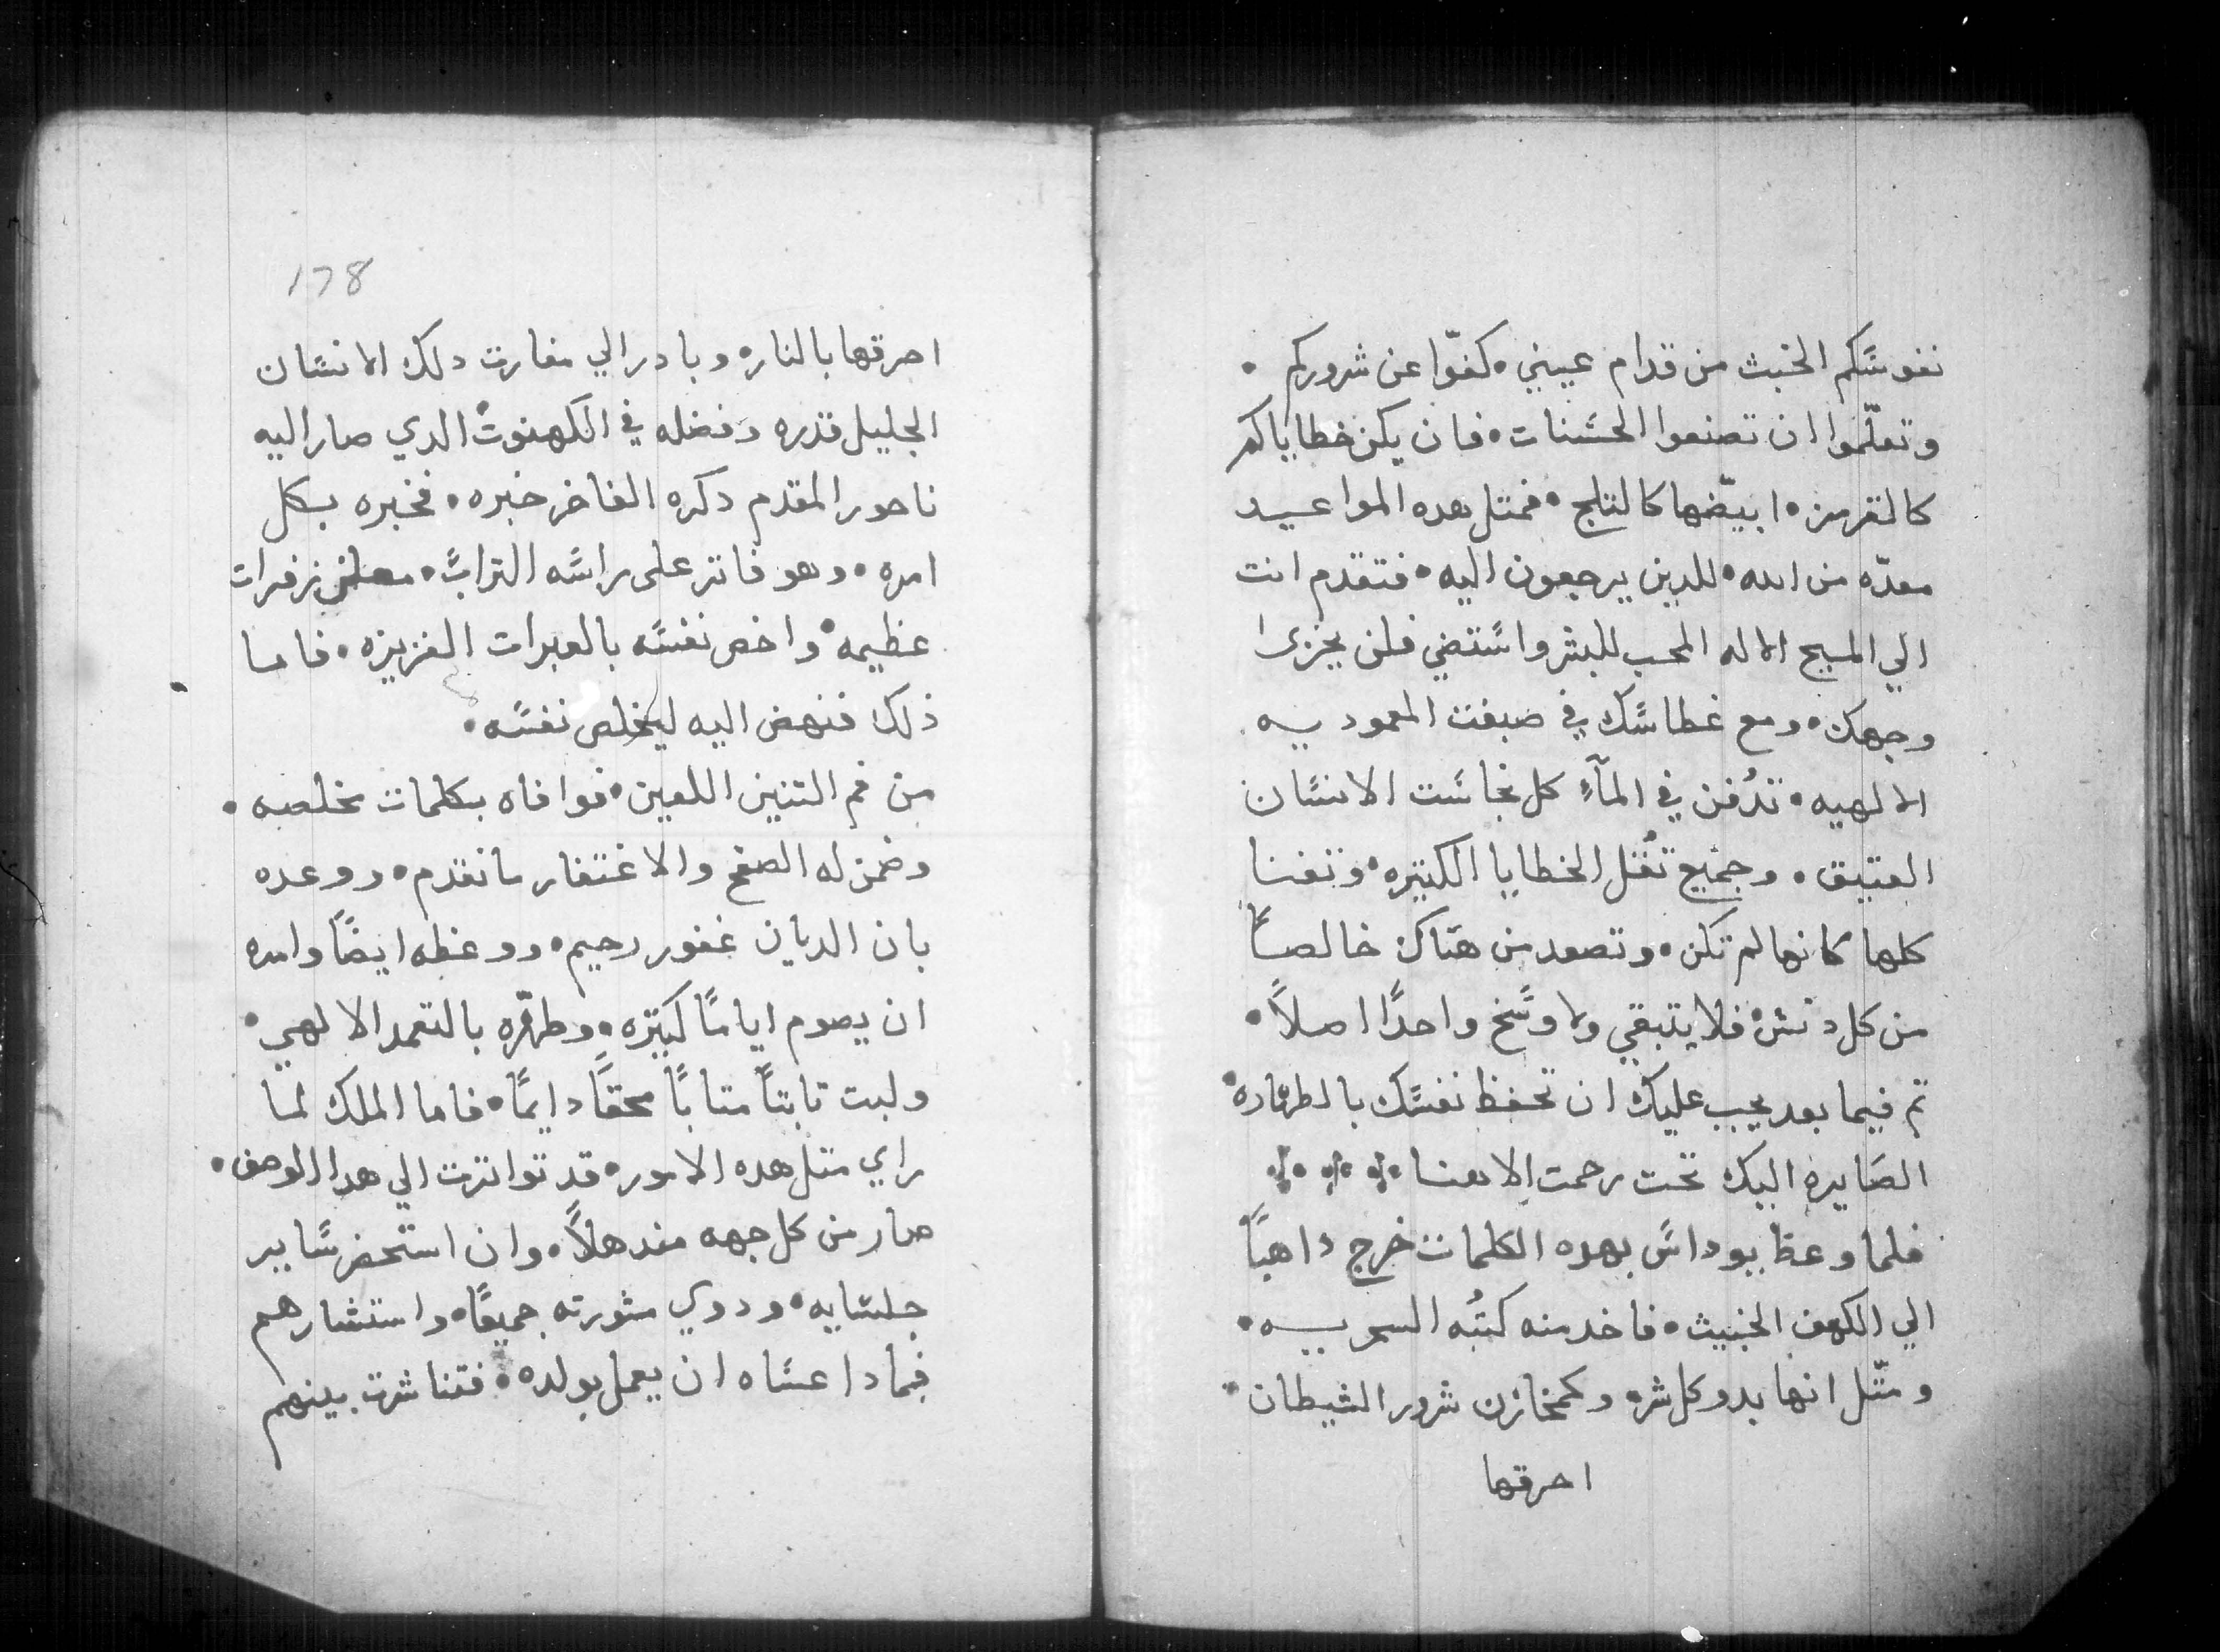 نفوسكم الخبث من قدام عيني • كفّوا عن شروركم •
وتعلّموا ان تصنعوا الحسنات • فان يكن خطاياكم
كالقرمز • ابيّضها كالتلج • فمتل هده المواعيد
معدّه من الله • للدين يرجعون اليه • فتقدم انت
الي المسيح الاله المحب للبشر واستضي فلن يخزى
وجهك • ومع غطاسك في صبغت المعموديه
الالهيه • تدُفن في المآءِ كل نجاست الانسان
العتيق • وجميع تُقل الخطايا الكتيره • وتفنا
كلها كانها لم تكن • وتصعد من هناك خالصاً
من كل دنس • فلا يتبقي ولا وسخ واحدًا اصلاً •
تم فيما بعد يجب عليك ان تحفظ نفسك بالطهاره •
الصَايره اليك تحت رحمت الاهنا
فلما وعظ بيوداس بهده الكلمات خرج داهباً
الي الكهف الخبيث • فاخد منه كتُبه السحريه •
ومتّل انها بدو كل شر • وكمخازن شرور الشيطان •
احرقها
178
احرقها بالنار • وبادر الي مغارت دلك الانسان
الجليل قدره وفضله في الكهنوت • الدي صار اليه
ناحور المقدم دكره الفاخر خبره • فخبره بكل
امره • وهو فاتر على راسه التراب • زفرات
عظيمه • واخص نفسه بالعبرات الغزيزه • فاما
ذلك فنهض اليه ليخلص نفسه •
من فم التنين اللعين • فوافاه بكلمات تخلصه •
وضمن له الصفح والاغتفار ما تقدم • ووعده
بان الديان غفور رحيم • ووعظه ايضًا وامره
ان يصوم ايامًا كتيره • وطهّره بالتعمد الالهي •
ولبت تابتاً متاباً محقاً دايمًا • فاما الملك لما
راي متل هده الامور • قد تواترت الي هدا الوصف •
صار من كل جهه مندهلاً • وان استحضر ساير
جلسايه • ودوي مشورته جميعًا • واستشارهم
فيمادا عساه ان يعمل بولده • فتناشرت بينهم